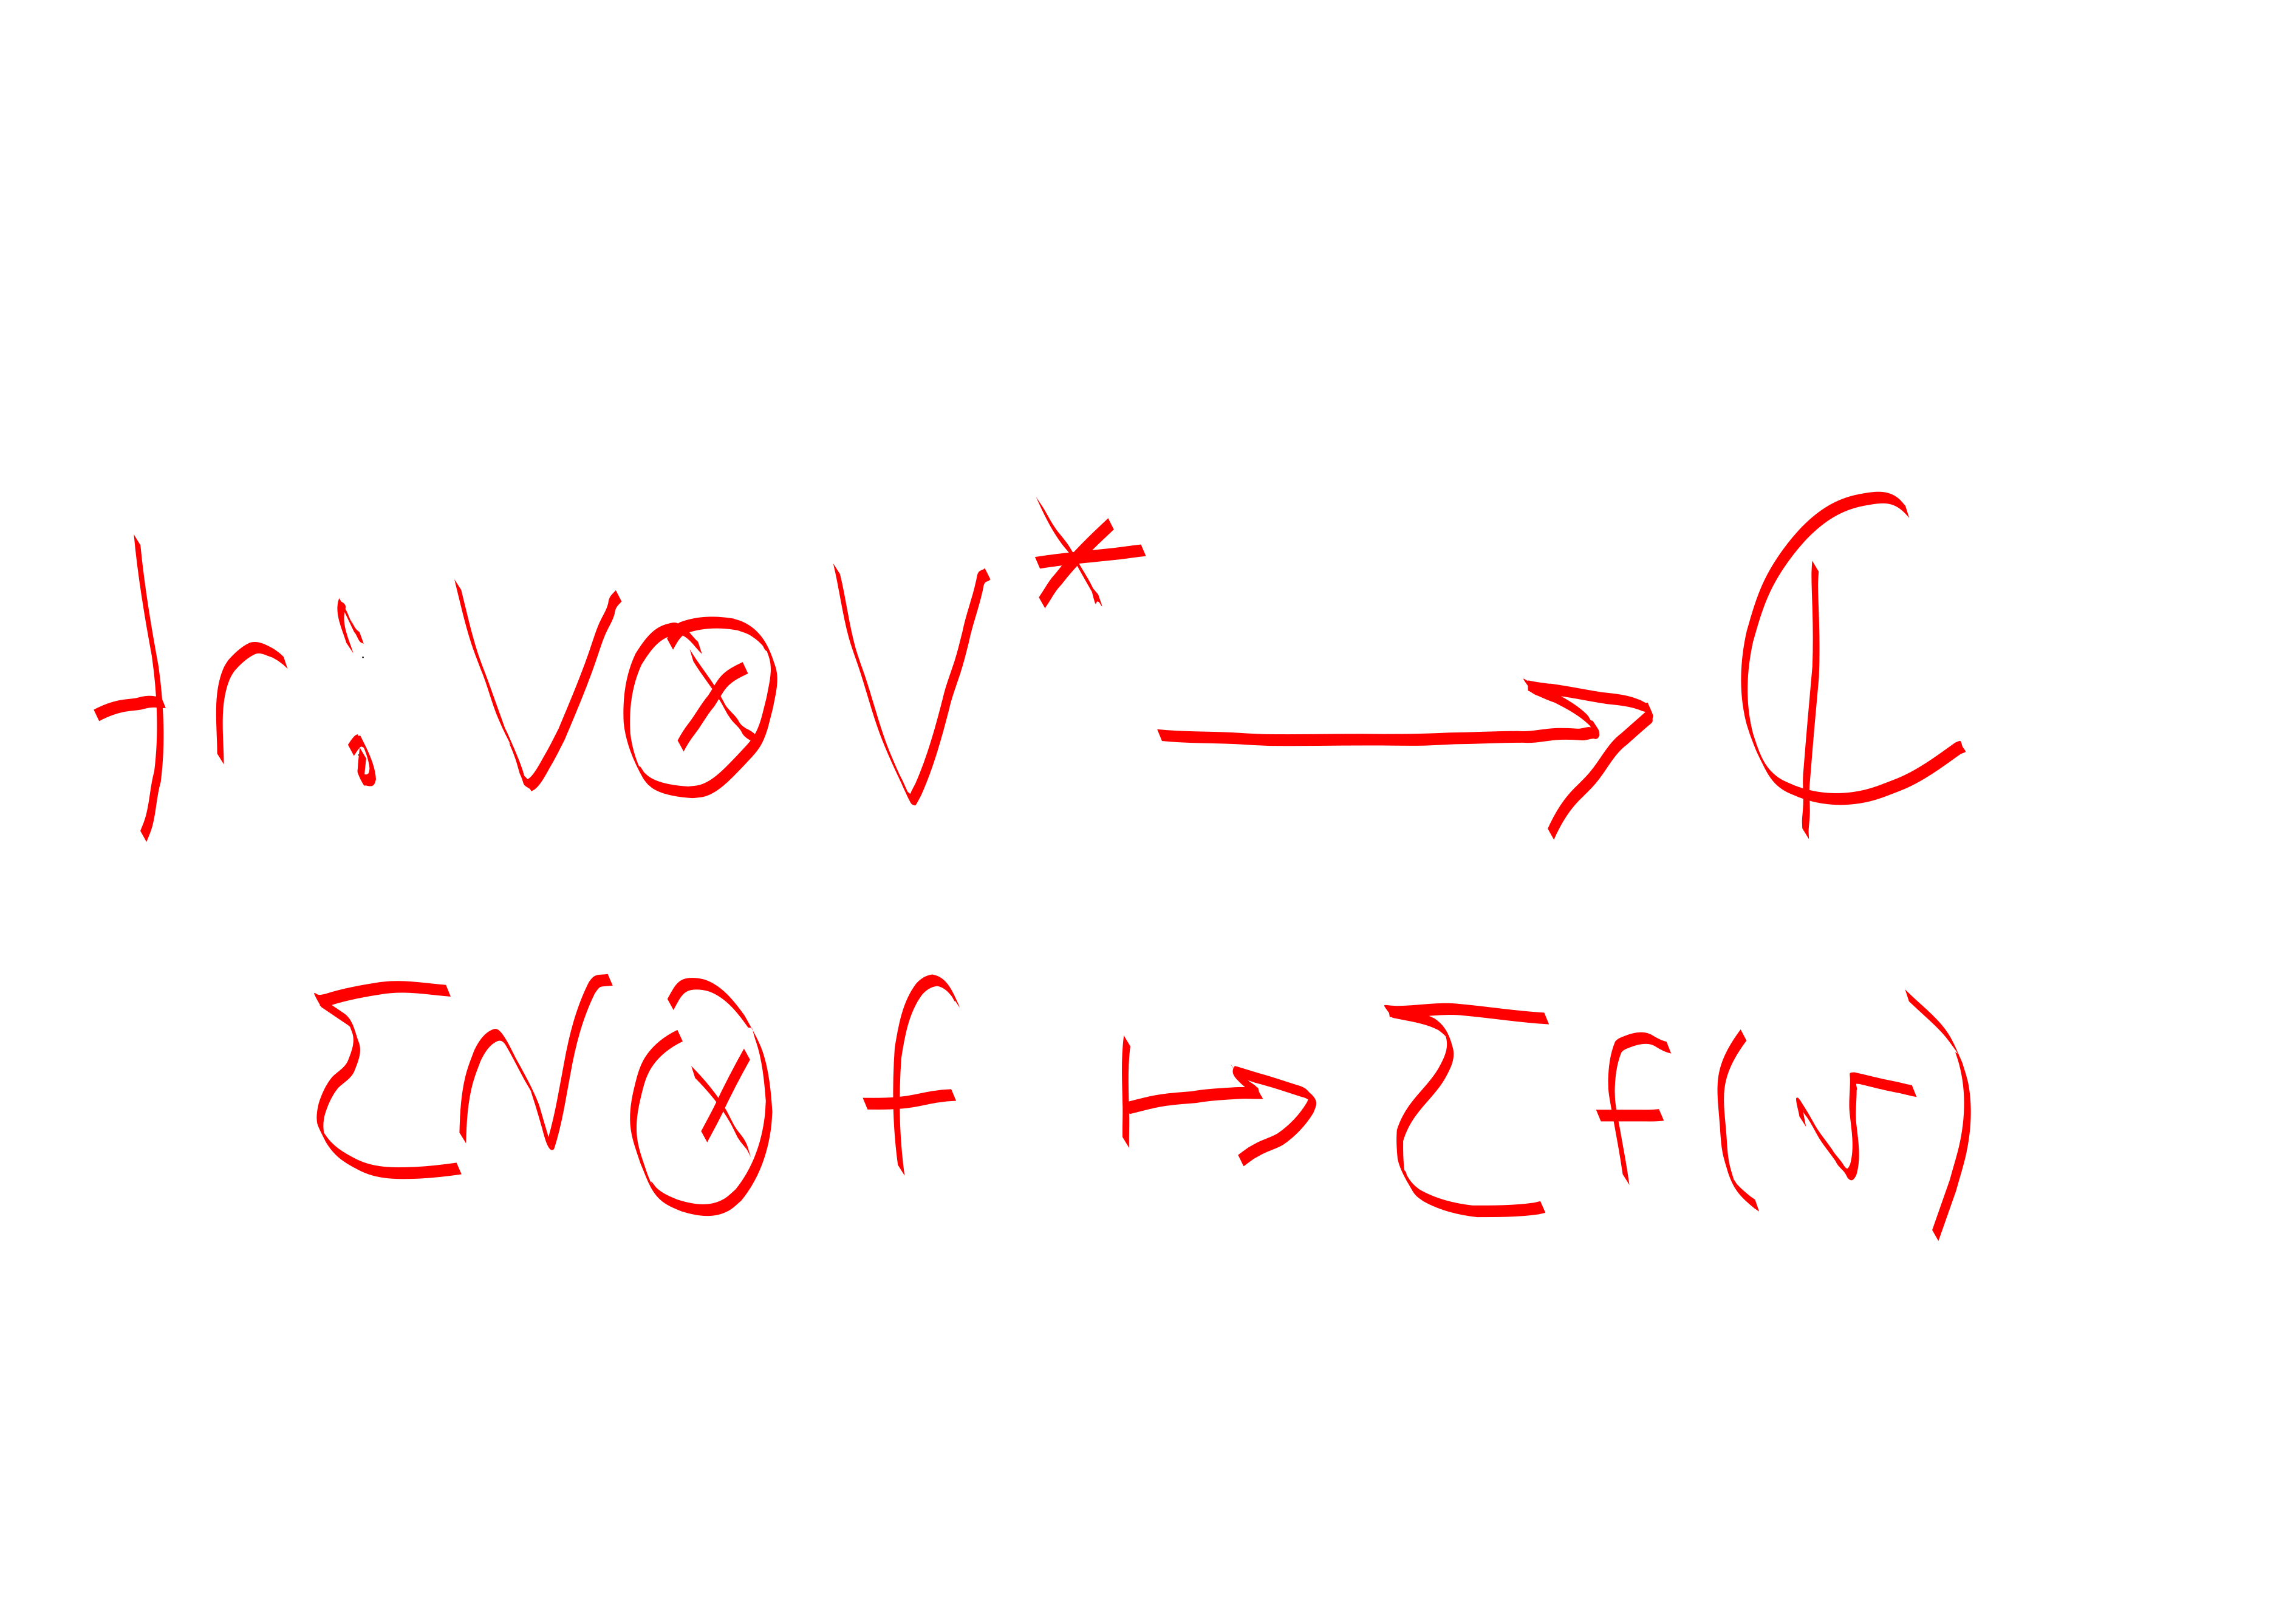 tr : V ⊗ V* → ℂ
Σ v ⊗ f ↦ Σ f(v)